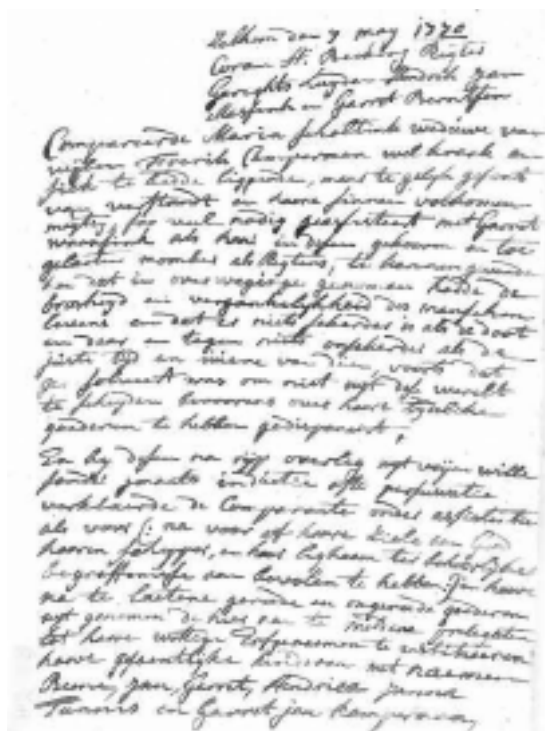 Zelhem den 7 may 1770
Coram H. Rigter
Gerigts Luyden Hendrik Jan
en Garrit
Compareerde Maria Scholtink weduwe van
wylen Frerik Camperman wel krank en
siek te bedde liggende, maer te gelyk
van verstandt en haare sinnen volkomen
magtig, so veel nodig geassisteert met Garrit
als haar in desen gekooren en toe
gelaten momber als Rigtens, te kennen gevende
en dat in overweginge genomen hadde de
broosheyt en vergankelykheid des menschen
levens en dat er niets sekerder is als de doot
en daar en tegen niets onsekerder als de
juiste tyd en uiere van dien, voorts dat
was om niet uyt dese werelt
te scheyden bevoorens over haare tydelike
goederen te hebben gedisponeert,
En by desen na ryp overleg uyt vryen wille
inductie ofte persuasie
verklaarde de Comparante onder assistentie
als voor na voor af haare Ziele aen God
haaren Schepper, en haar lighaem ter behoorlyke
begraffenisse aen bevolen te hebben haare
na te laetene gereede en ongereede goederen
uyt genomen de hier na te
tot haare wettige Erfgenaemen te institueeren
haare gesaentlyke kinderen met naemen
Berent, Jan, Gerrit, Hendrik
Teunis en Garrit Jan Kamperman,